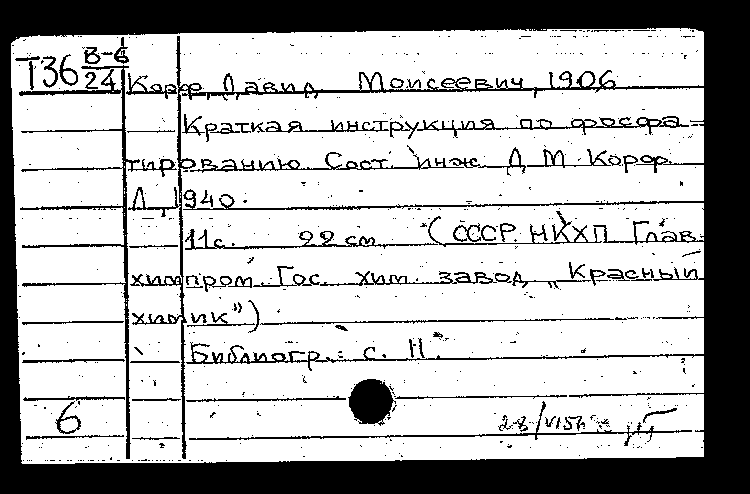 Т36 В-6
24 Корф, Давид Моисеевич, 1906
Краткая инструкция по фосфа-
тированию. Сост. инж. Д. М. Корф.
Л., 1940.
11 с. 22 см. (СССР. НКХП. Глав-
химпром. Гос. хим. завод „Красный
химик")
Библиогр.: с. 11.
6